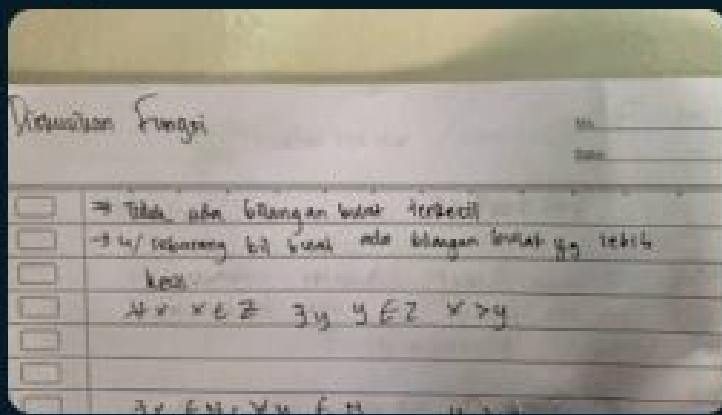 Fungsi
No.
Date
⇒ Tidak ada bilangan bulat terkecil
→ u/ sebarang bil bulat ada bilangan bulat yg lebih
kecil.
∀x x ∈ Z ∃y y ∈ Z x > y